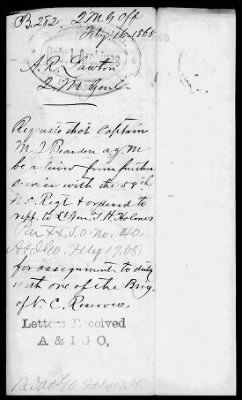 B. 282 Q.M.G. Off
Feby 16. 1865
A. R. Lawton
Q. M. Genl.
Requests that Captain
M. J. Bearden a.q.m
be relieved from further
service with the 58th
N. C. Regt & ordered to
rept. to Lt. Gen. T. H. Holmes
Par S.O. no. 40
A & I G O. Feby 17. 65.
for assignment to duty
with one of the Brig.
of N. C. Reserves.
Letters Received
A & I G O,